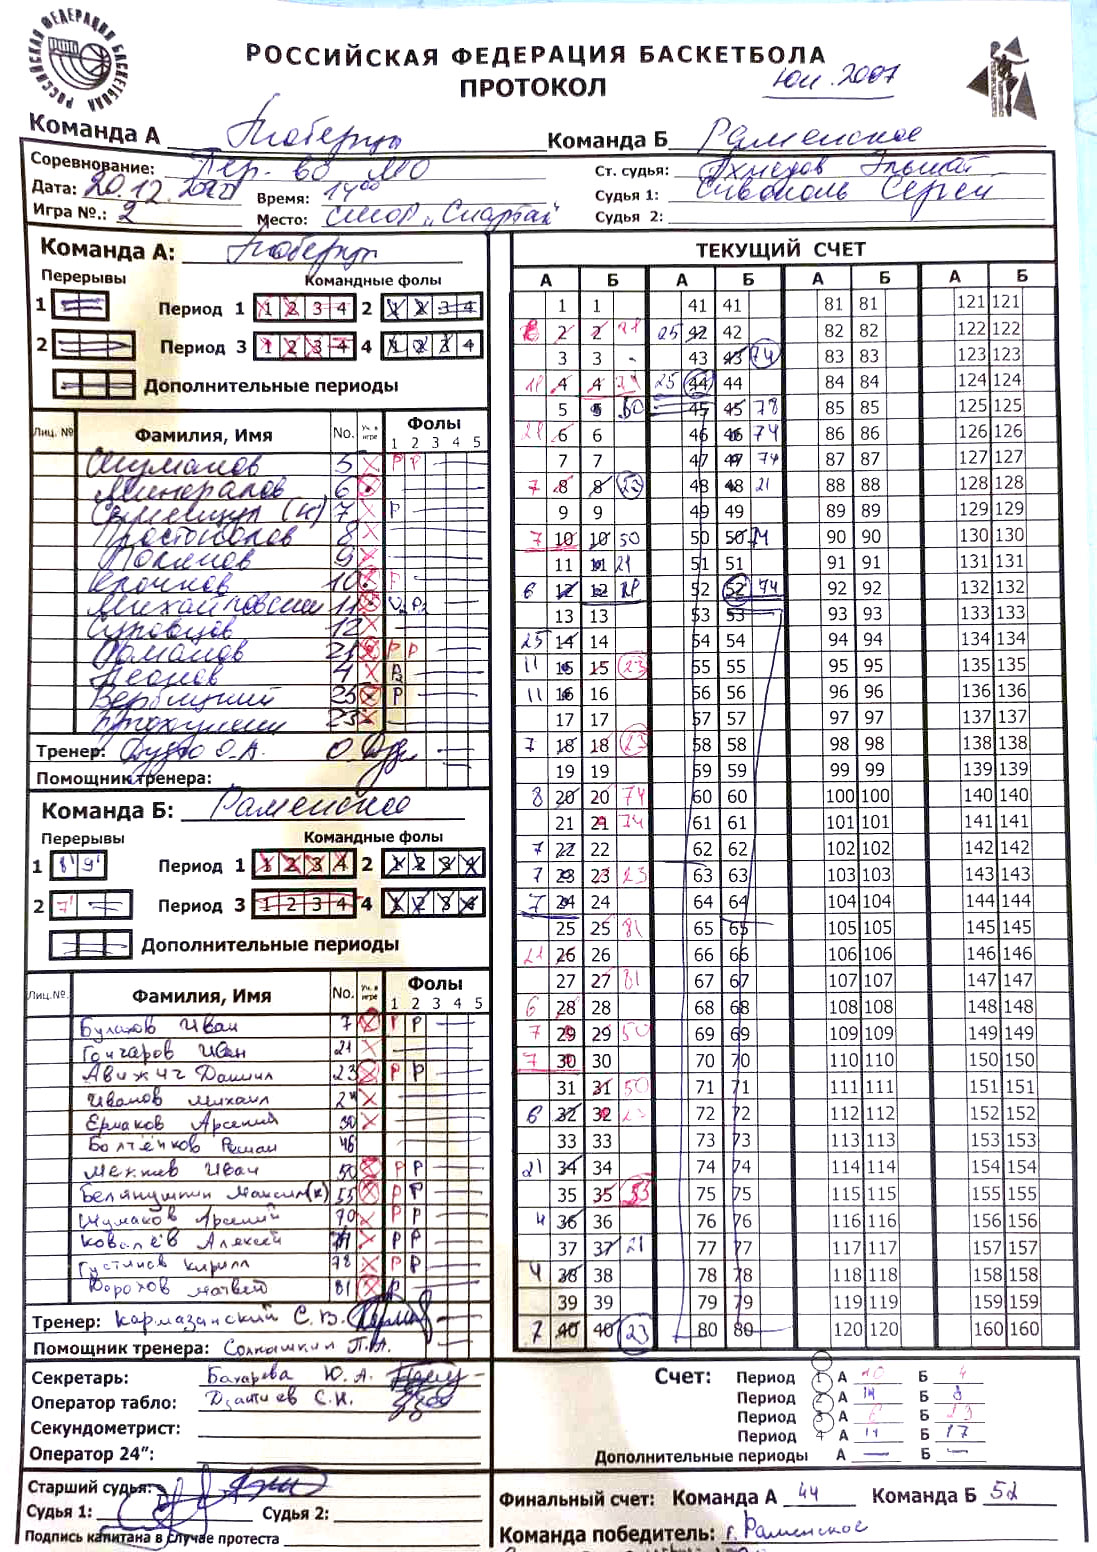 РОССИЙСКАЯ ФЕДЕРАЦИЯ БАСКЕТБОЛА
РОССИЙСКАЯ ФЕДЕРАЦИЯ БАСКЕТБОЛА
ПРОТОКОЛ
Юн. 2007
Команда А Люберцы Команда Б Раменское
Соревнование: Пер-во МО
Дата: 20.12.2020 Время: 14 00
Игра №.: 2 Место: "Спартак"
Ст. судья: Ахмедов Эльшат
Судья 1: Сивополь Сергей
Судья 2:
Команда А: Люберцы
Перерывы Командные фолы
1 Период 1 1 2 3 4 2 1 2 3 4
2 Период 3 1 2 3 4 4 1 2 3 4
Дополнительные периоды
Лиц. № Фамилия, Имя No. Уч. в игре Фолы
1 2 3 4 5
Шуманов 5 P P
Минералов 6
(К) 7 P
Простоволов 8
9
10 P
Михайловский 11
Суровцов 12
Романов 21 P P
Леонов 4
Вербицкий 25 P
23
Тренер: О.А.
Помощник тренера:
Команда Б: Раменское
Перерывы Командные фолы
1 8' 9' Период 1 1 2 3 4 2 1 2 3 4
2 7' Период 3 1 2 3 4 4 1 2 3 4
Дополнительные периоды
Лиц.№. Фамилия, Имя No. Уч. в игре Фолы
1 2 3 4 5
Булахов Иван 7 P P
Гончаров Иван 21
Авижич Даниил 23 P P
Иванов Михаил 24
Ермаков Арсений 30
Болтенков Роман 46
Иван 50 P P
Белянушкин Максим (к) 55 P P
Шумаков Арсений 70 P P
Ковалёв Алексей 74 P P
Кирилл 78 P P
Дорохов Матвей 81 P
Тренер: Кармазанский С.В.
Помощник тренера: П.А.
Секретарь: Бахарева Ю.А.
Оператор табло: С.Н.
Секундометрист:
Оператор 24":
Старший судья:
Судья 1: Судья 2:
Подпись капитана в случае протеста
ТЕКУЩИЙ СЧЕТ
А Б А Б А Б А Б
1 1 41 41 81 81 121 121
2 2 21 25 42 42 82 82 122 122
3 3 43 43 74 83 83 123 123
4 4 25 44 44 84 84 124 124
5 5 50 45 45 78 85 85 125 125
21 6 6 46 46 74 86 86 126 126
7 7 47 47 74 87 87 127 127
7 8 8 23 48 48 21 88 88 128 128
9 9 49 49 89 89 129 129
7 10 10 50 50 50 74 90 90 130 130
11 11 21 51 51 91 91 131 131
6 12 12 52 52 74 92 92 132 132
13 13 53 53 93 93 133 133
25 14 14 54 54 94 94 134 134
11 15 15 23 55 55 95 95 135 135
11 16 16 56 56 96 96 136 136
17 17 57 57 97 97 137 137
7 18 18 23 58 58 98 98 138 138
19 19 59 59 99 99 139 139
8 20 20 74 60 60 100 100 140 140
21 21 74 61 61 101 101 141 141
7 22 22 62 62 102 102 142 142
7 23 23 23 63 63 103 103 143 143
7 24 24 64 64 104 104 144 144
25 25 81 65 65 105 105 145 145
21 26 26 66 66 106 106 146 146
27 27 81 67 67 107 107 147 147
6 28 28 68 68 108 108 148 148
7 29 29 50 69 69 109 109 149 149
7 30 30 70 70 110 110 150 150
31 31 50 71 71 111 111 151 151
6 32 32 23 72 72 112 112 152 152
33 33 73 73 113 113 153 153
21 34 34 74 74 114 114 154 154
35 35 55 75 75 115 115 155 155
4 36 36 76 76 116 116 156 156
37 37 21 77 77 117 117 157 157
4 38 38 78 78 118 118 158 158
39 39 79 79 119 119 159 159
7 40 40 23 80 80 120 120 160 160
Счет: Период 1 А 10 Б 4
Период 2 А 14 Б 8
Период 3 А 6 Б 23
Период 4 А 14 Б 17
Дополнительные периоды А — Б —
Финальный счет: Команда А 44 Команда Б 52
Команда победитель: г. Раменское